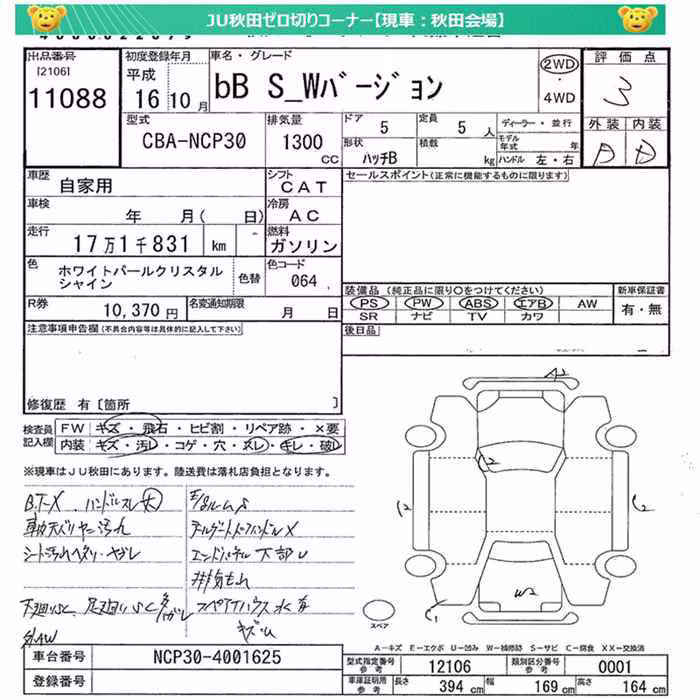 JU秋田ゼロ切りコーナー【現車：秋田会場】
出品番号
[2106]
11088
初度登録年月
平成
16 年 10 月
車名・グレード
bB S_Wバージョン
2WD
・
4WD
評価点
3
外装 内装
型式
CBA-NCP30
排気量
1300 CC
ドア 5
定員 5 人
形状 ハッチB
積載 kg
ディーラー・並行
モデル年式 年
ハンドル 左・右
A D
車歴
自家用
シフト
CAT
車検
年 月( 日)
冷房
AC
走行
17万1千831 km
燃料
ガソリン
色
ホワイトパールクリスタル
シャイン
色替
色コード
064
R券
10,370 円
名変通知期限
月 日
セールスポイント(正常に機能するものに限ります)
装備品 (純正品に限り○をつけてください)
PS PW ABS エアB AW
SR ナビ TV カワ
新車保証書
有・無
後日品
注意事項申告欄(不具合内容等は具体的に記入して下さい)
修復歴 有 [箇所 ]
検査員
記入欄
FW キズ・飛石・ヒビ割・リペア跡・×要
内装 キズ・汚レ・コゲ・穴・スレ・キレ・破レ
※現車はJU秋田にあります。陸送費は落札店負担となります。
B.T-X ハンドルスレ大
シート汚れ
テールゲートハンドルX
下部U
排気もれ
スペアタイヤハウス水有
キズ
外AW
A2
C2
C2
C2
W2
C1
スペア
A－キズ E－エクボ U－凹み W－補修跡 S－サビ C－腐食 XX－交換済
車台番号
NCP30-4001625
登録番号
型式指定番号
参考
12106
類別区分番号
参考
0001
車庫証明用
参考
長さ 394 cm
幅 169 cm
高さ 164 cm